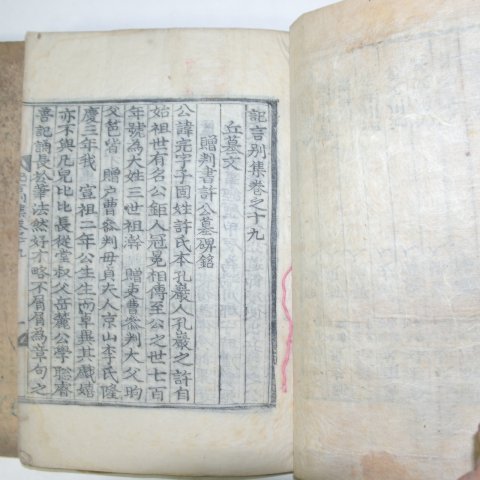 記言別集卷之十九
丘墓文
贈判書許公墓碑銘
公諱完字子固姓許氏本孔巖人孔巖之許自
始祖世有名公鉅人冠冕相傳至公之世七百
年號為大姓三世祖㵓贈吏曹參判大父昀
父邕皆贈戶曹參判母貞夫人京山李氏隆
慶三年我宣祖二年公生生而卓異其戲嬉
亦不與凡兒比比長從堂叔父岳麓公學聡睿
善記誦長於筆法然好才略不屑屑為章句之